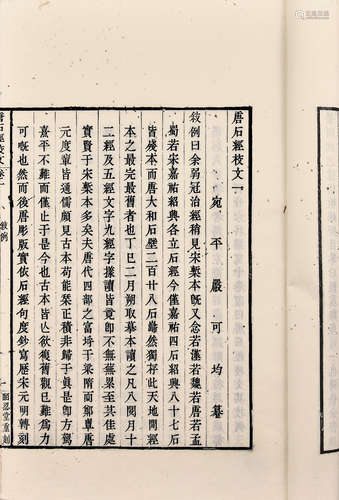 唐石經校文一
宛平嚴可均纂
敘例曰余弱冠治經稍見宋槧本既又念若漢若魏若唐若孟
蜀若宋嘉祐紹興各立石經今僅嘉祐四石紹興八十七石
皆殘本而唐大和石壁二百廿八石巋然獨存此天地間經
本之最完最舊者也丁巳二月朔取摹本讀之凡八閱月十
二經及五經文字九經字樣讀皆竟即不無蕪累至其佳處
實賢于宋槧本多矣夫唐代四部之富埒于梁隋而鄭覃唐
元度輩皆通儒頗見古本苟能栞正積非歸于眞是即方駕
嘉平不難而僅止于是今也古本皆亡欲復舊觀已難為力
可嘅也然而後唐彫版實依石經句度鈔寫歷宋元明轉刻
唐石經校文卷一
敘例
一
四录堂重刻